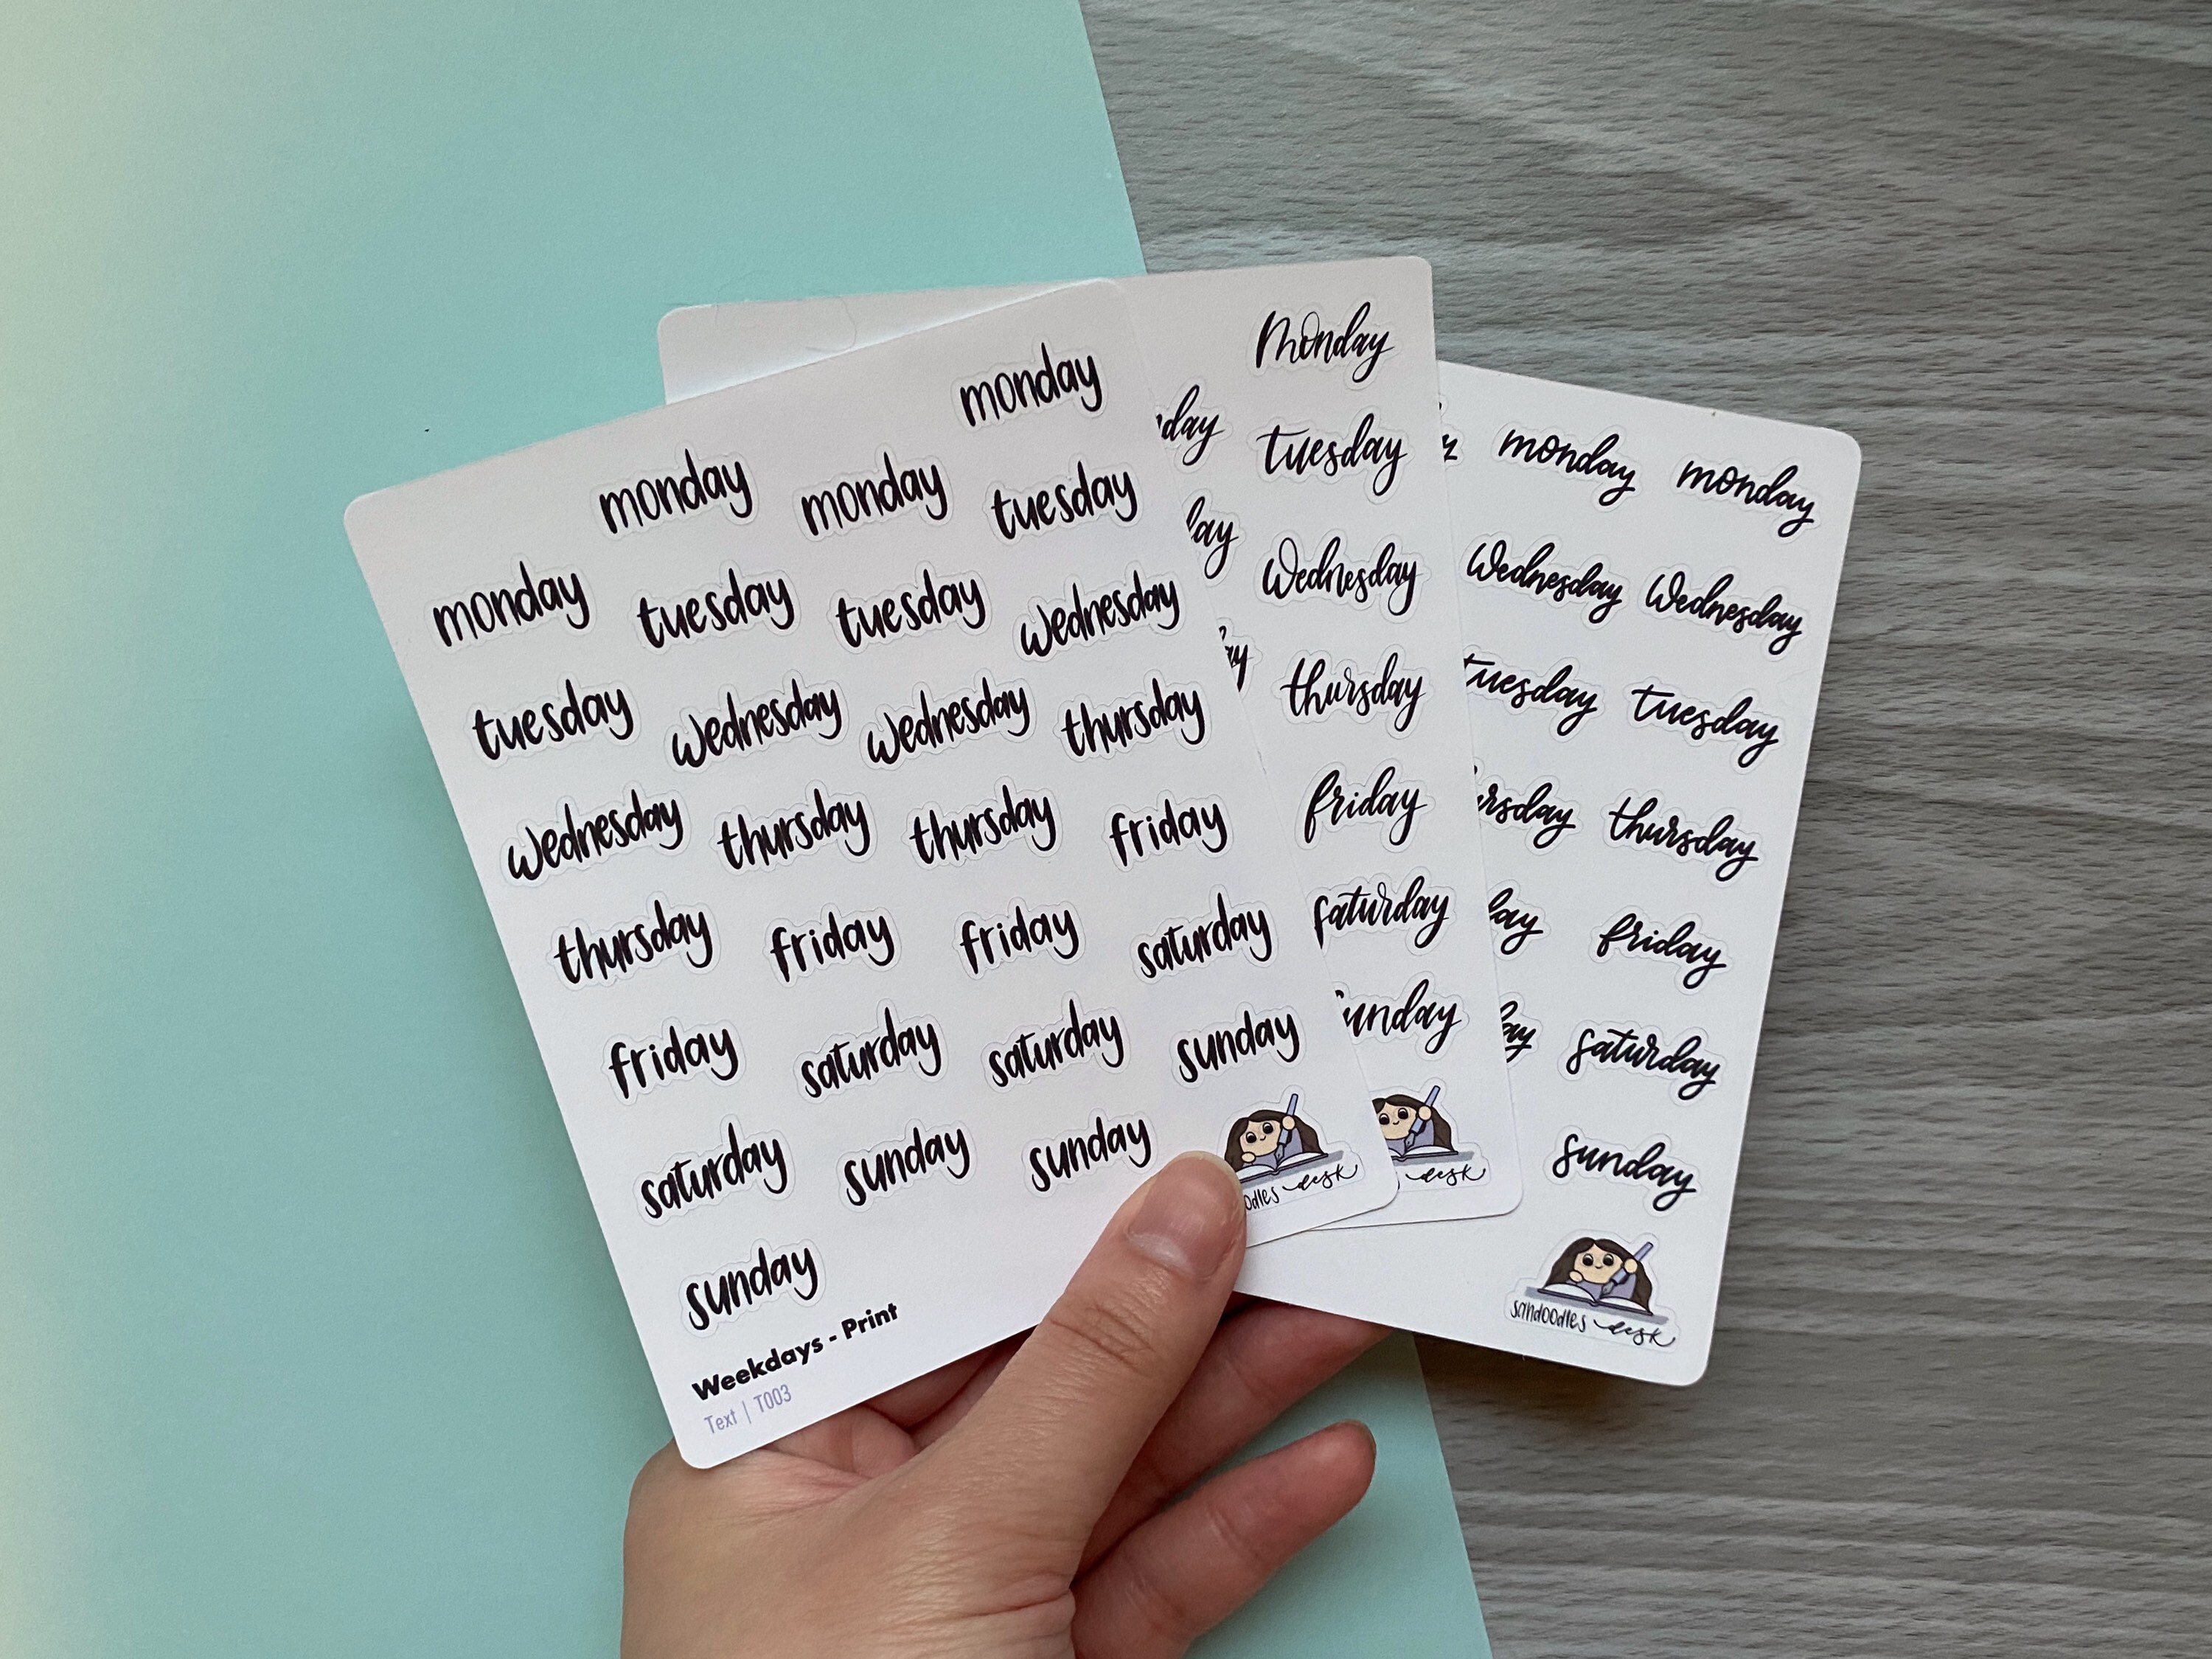 monday monday monday monday
tuesday tuesday tuesday tuesday
wednesday wednesday wednesday wednesday
thursday thursday thursday thursday
friday friday friday friday
saturday saturday saturday saturday
sunday sunday sunday sunday
Weekdays - Print
Text | T003
desk
monday
tuesday
wednesday
thursday
friday
saturday
sunday
desk
monday monday
wednesday wednesday
tuesday tuesday
thursday
friday
saturday
sunday
sandoodles desk